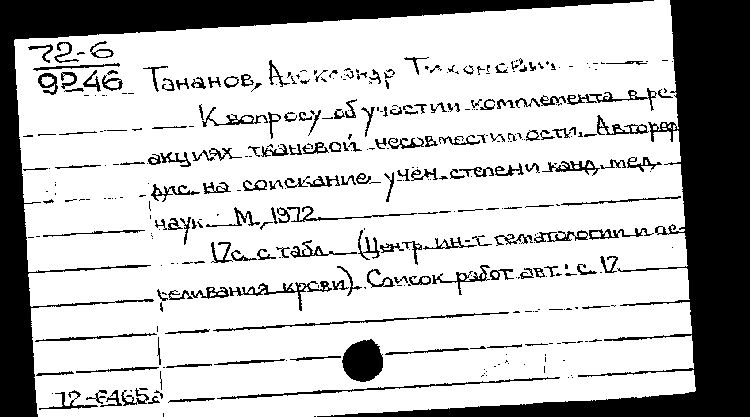 72-6
9246
Тананов, Александр Тихонович
К вопросу об участии комплемента в ре-
акциях тканевой несовместимости. Автореф.
дис. на соискание учен. степени канд. мед.
наук. М., 1972.
17с. с табл. (Центр. ин-т гематологии и пе-
реливания крови). Список работ авт.: с. 17.
72-6465а